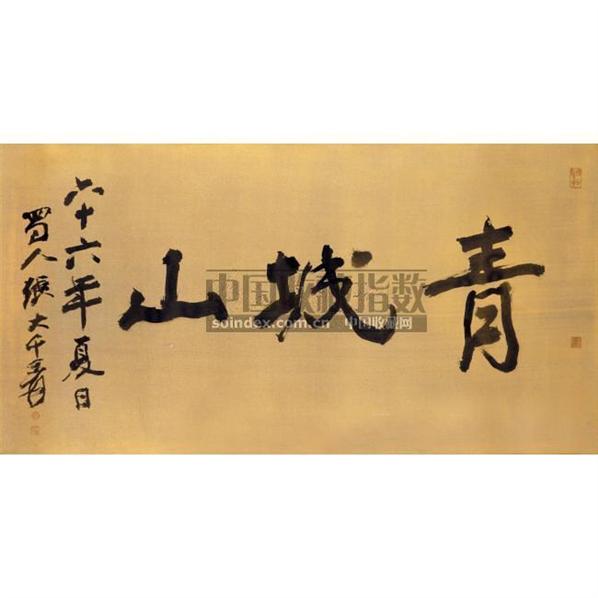 青城山
六十六年夏日
蜀人張大千爰
中国收藏指数
soindex.com.cn 中国收藏网